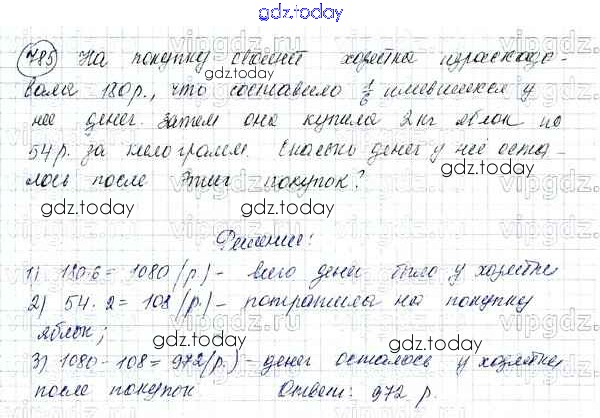 gdz.today
785) На покупку овощей хозяйка израсходо-
вала 180 р., что составило 1/6 имевшихся у
нее денег. Затем она купила 2 кг яблок по
54 р. за килограмм. Сколько денег у неё оста-
лось после этих покупок?
Решение:
1) 180·6 = 1080 (р.) - всего денег было у хозяйки
2) 54·2 = 108 (р.) - потратила на покупку
яблок;
3) 1080 - 108 = 972 (р.) - денег осталось у хозяйки
после покупок Ответ: 972 р.